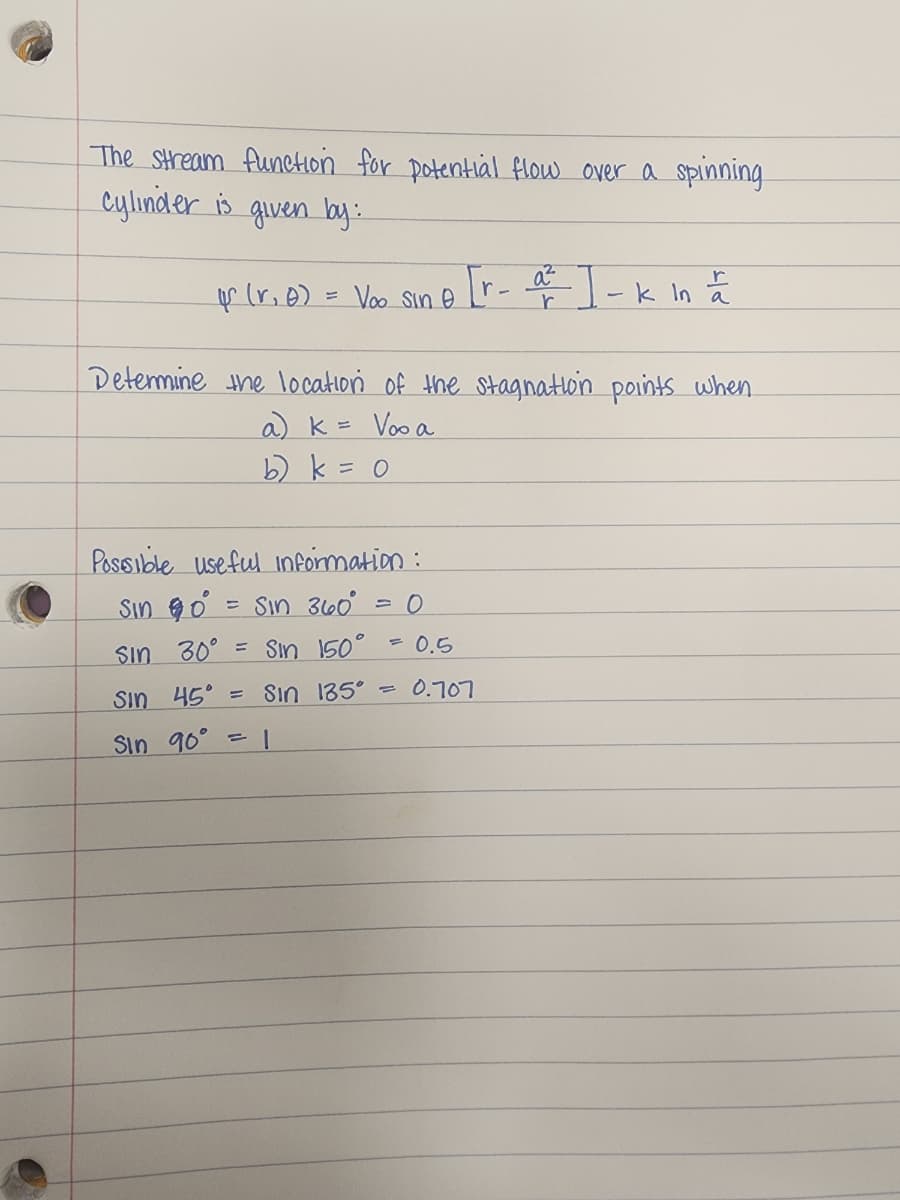 The stream function for potential flow over a spinning
cylinder is given by:
ψ (r, θ) = V∞ sin θ [r - a²/r] - k ln r/a
Determine the location of the stagnation points when
a) k = V∞ a
b) k = 0
Possible useful information :
sin 0° = sin 360° = 0
sin 30° = sin 150° = 0.5
sin 45° = sin 135° = 0.707
sin 90° = 1